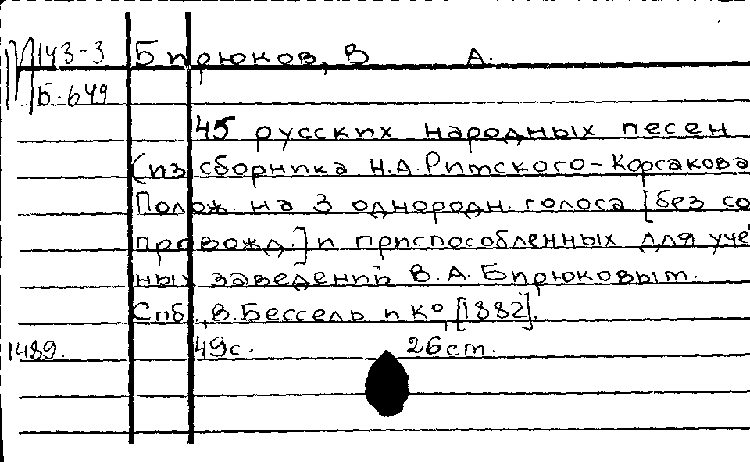 М143-3 Бирюков, В А.
Б-649
45 русских народных песен
(из сборника Н.А.Римского-Корсакова
Полож. на 3 однородн. голоса [без со
провожд.] и приспособленных для учеб
ных заведений В.А.Бирюковым.
Спб., В.Бессель и Кº, [1882].
1489. 49с. 26см.